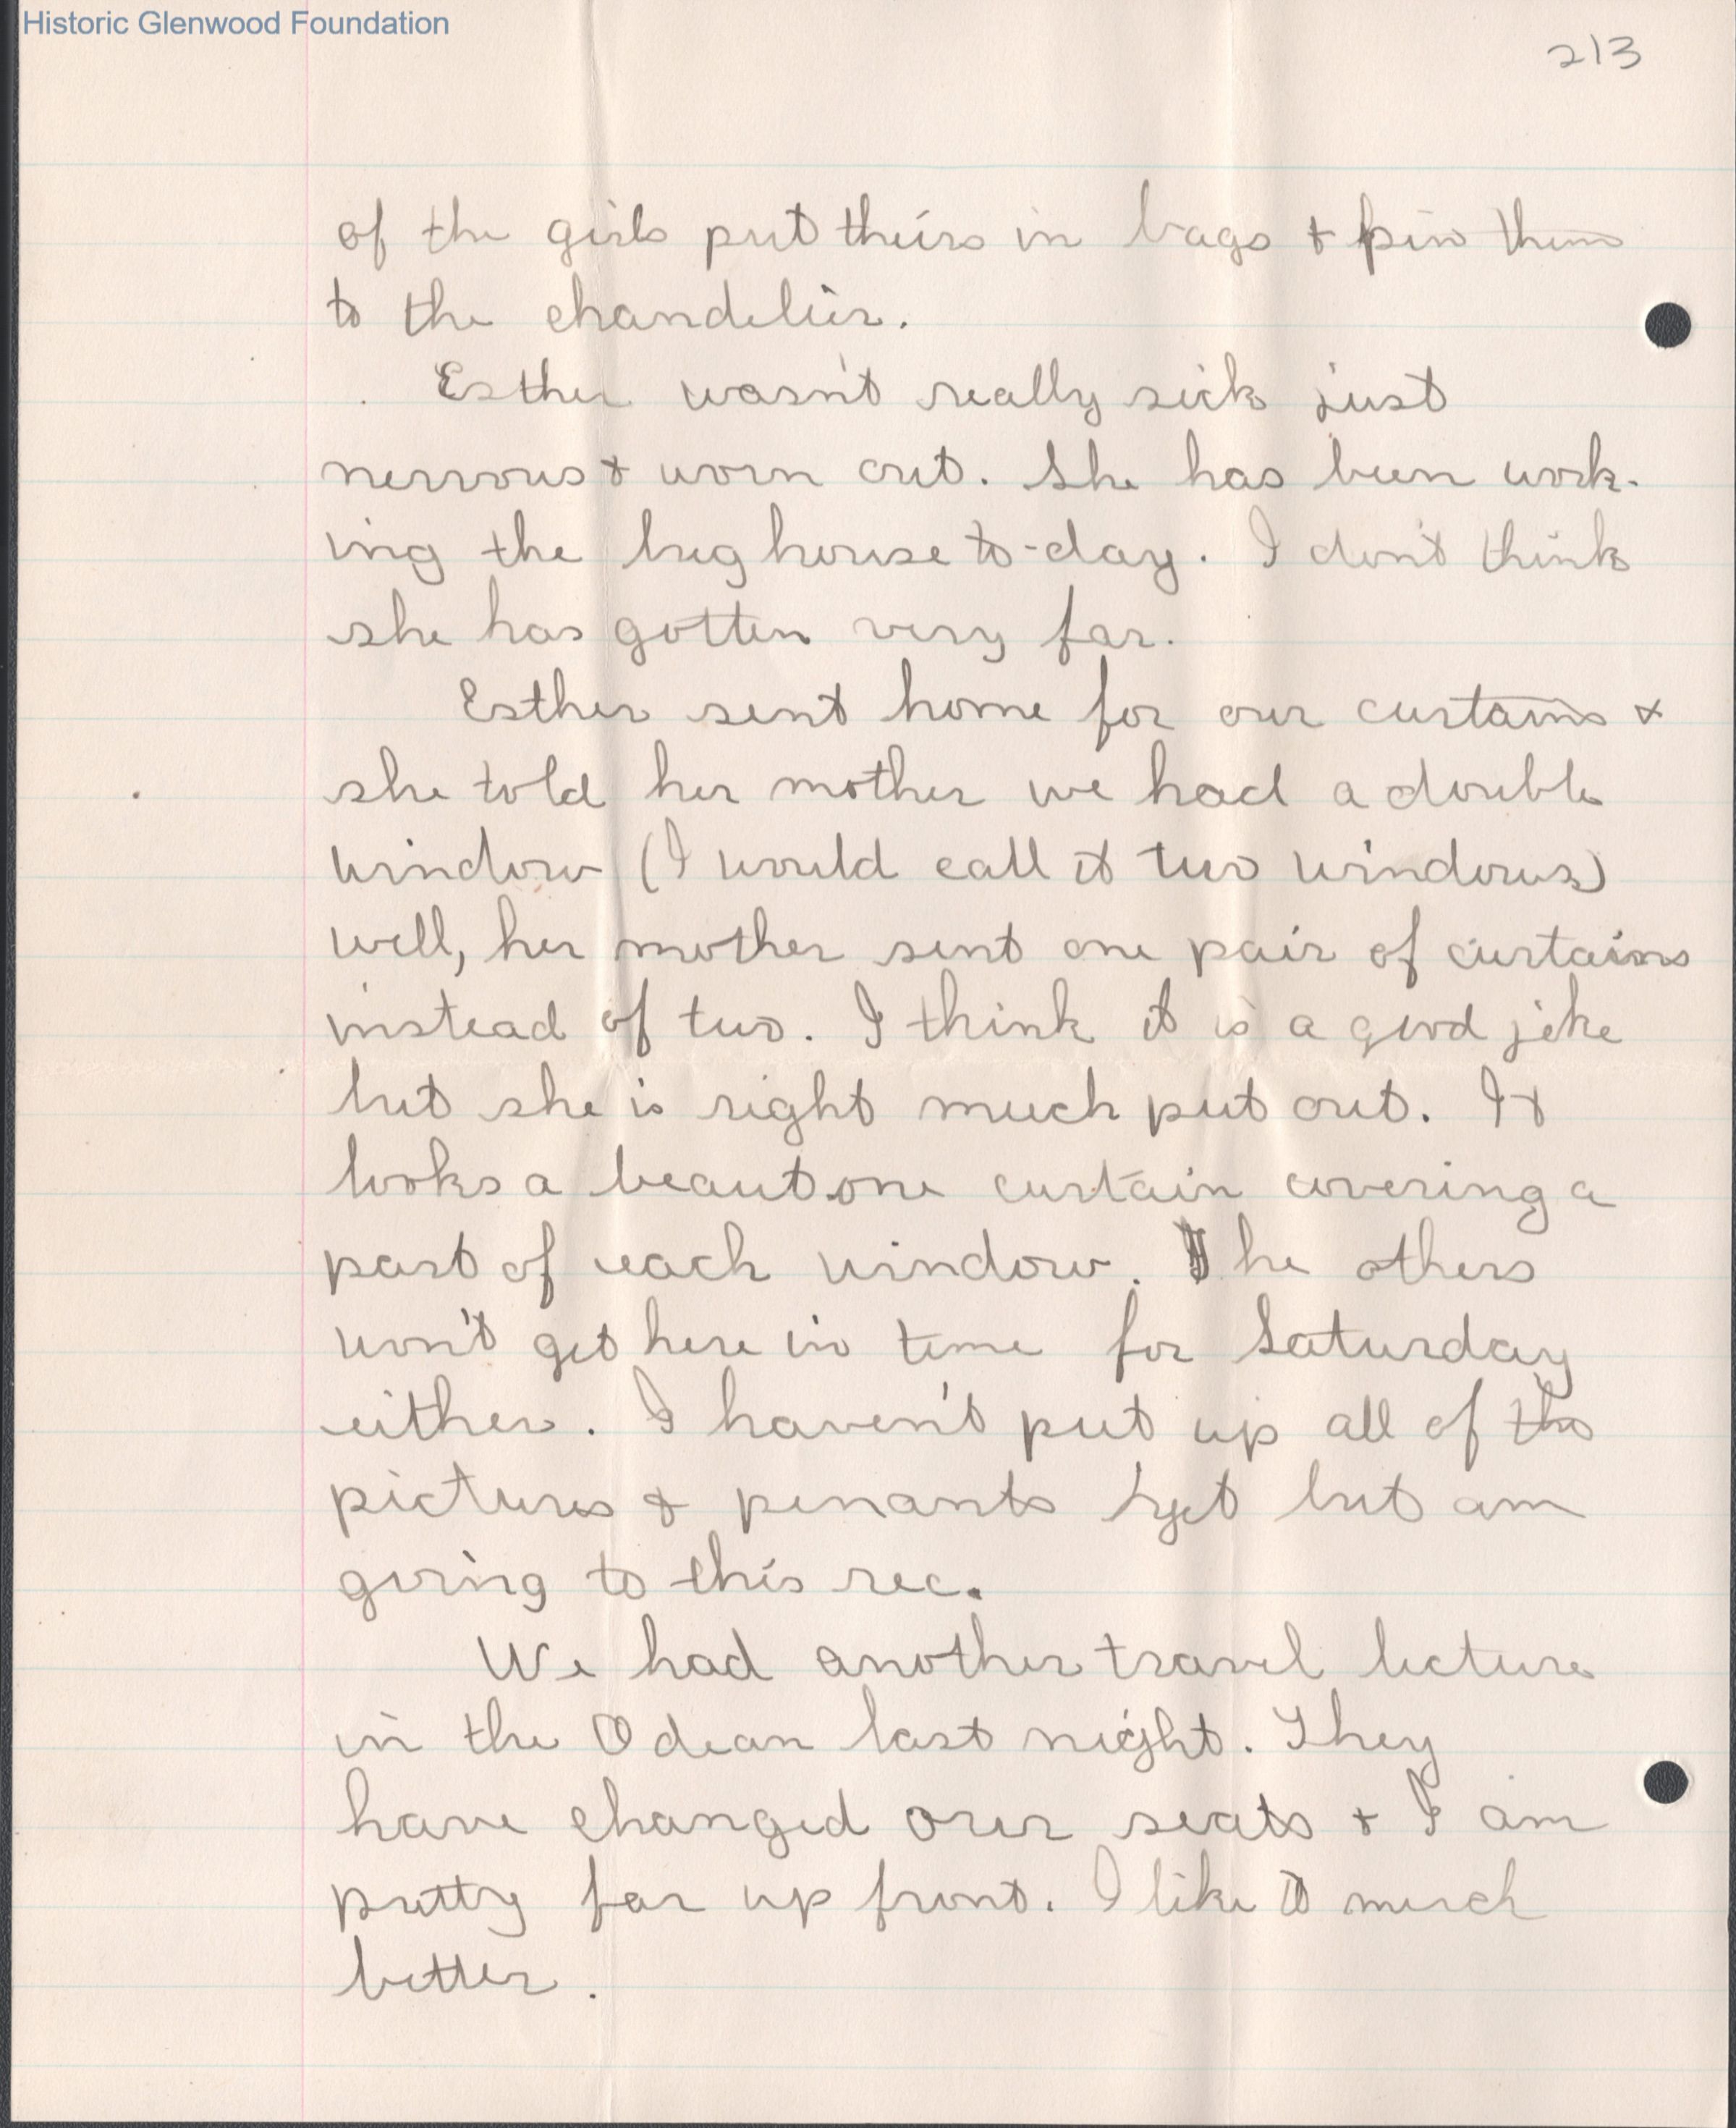 Historic Glenwood Foundation
213
of the girls put theirs in bags + pin them
to the chandelier.
Esther wasn't really sick just
nervous + worn out. She has been work-
ing the bug house to-day. I don't think
she has gotten very far.
Esther sent home for our curtains +
she told her mother we had a double
window (I would call it two windows)
well, her mother sent one pair of curtains
instead of two. I think it is a good joke
but she is right much put out. It
looks a beaut one curtain covering a
part of each window. The others
won't get here in time for Saturday
either. I haven't put up all of the
pictures + penants yet but am
going to this rec.
We had another travel lecture
in the Odean last night. They
have changed our seats + I am
pretty far up front. I like it much
better.